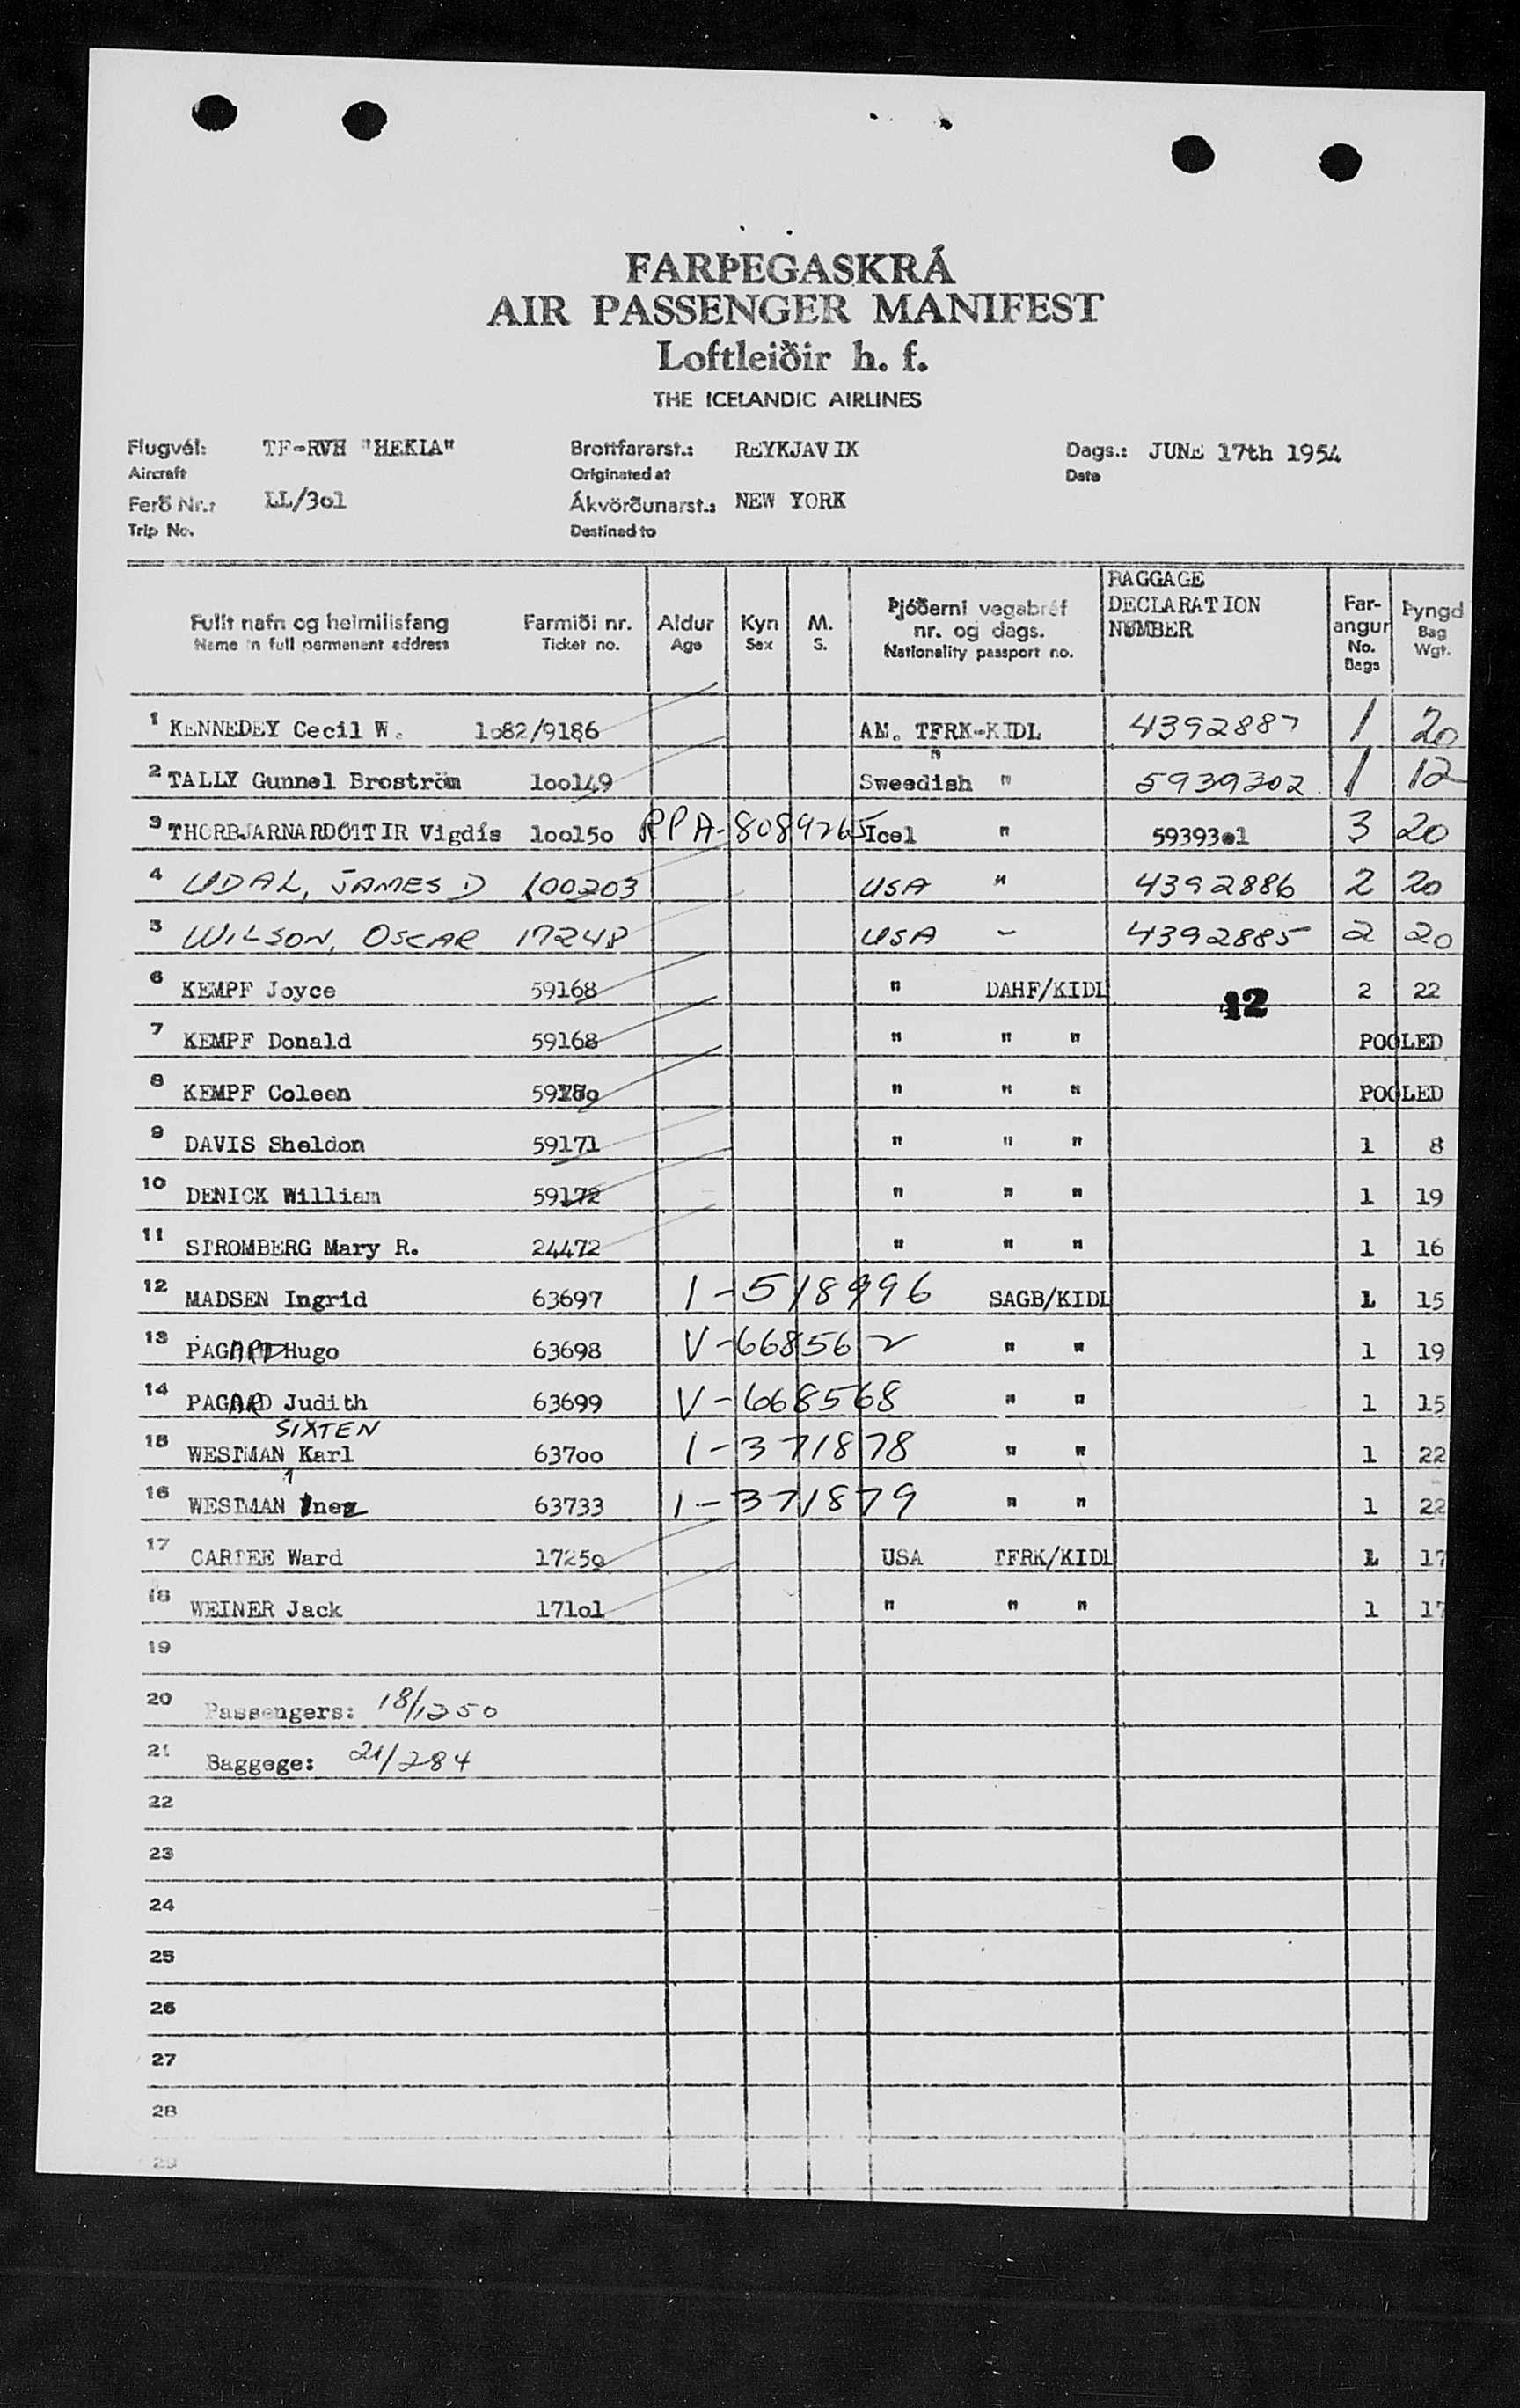 FARÞEGASKRÁ
AIR PASSENGER MANIFEST
Loftleiðir h. f.
THE ICELANDIC AIRLINES
Flugvél: TF-RVH "HEKLA" Brottfararst.: REYKJAVIK Dags.: JUNE 17th 1954
Aircraft Originated at Date
Ferð Nr.: LL/3o1 Ákvörðunarst.: NEW YORK
Trip No. Destined to
Fullt nafn og heimilisfang Farmiði nr. Aldur Kyn M. Þjóðerni vegabréf nr. og dags. BAGGAGE DECLARATION NUMBER Far-angur Þyngd
Name in full permanent address Ticket no. Age Sex S. Nationality passport no. No. Bags Bag Wgt.
1 KENNEDEY Cecil W. 1o82/9186 AM. TFRK-KIDL 4392887 1 20
"
2 TALLY Gunnel Broström 1oo149 Sweedish " 5939302 1 12
3 THORBJARNARDÓTTIR Vigdís 1oo15o PPA-8089265 Icel " 59393o1 3 20
4 UDAL, JAMES D 100203 USA " 4392886 2 20
5 WILSON, OSCAR 17248 USA - 4392885 2 20
6 KEMPF Joyce 59168 " DAHF/KIDL 2 22
12
7 KEMPF Donald 59168 " " " POOLED
8 KEMPF Coleen " " " POOLED
9 DAVIS Sheldon 59171 " " " 1 8
10 DENICK William 59172 " " " 1 19
11 STROMBERG Mary R. 24472 " " " 1 16
12 MADSEN Ingrid 63697 1-518996 SAGB/KIDL 1 15
13 PAGARD Hugo 63698 V-668562 " " 1 19
14 PAGARD Judith 63699 V-668568 " " 1 15
SIXTEN
15 WESTMAN Karl 637oo 1-371878 " " 1 22
16 WESTMAN Inez 63733 1-371879 " " 1 22
17 CARTEE Ward 1725o USA TFRK/KIDL 1 17
18 WEINER Jack 171o1 " " " 1 17
19
20 Passengers: 18/1250
21 Baggege: 21/284
22
23
24
25
26
27
28
29